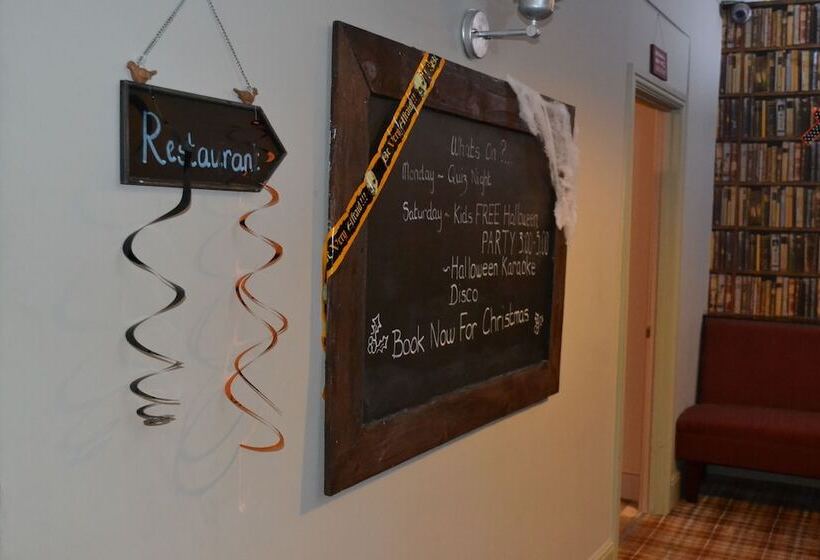 Restaurant
Be Very Afraid!!!
Very Afraid!!!
Whats On ?...
Monday ~ Quiz Night
Saturday ~ Kids FREE Halloween
PARTY 3:00-5:00
~Halloween Karaoke
Disco
Book Now For Christmas